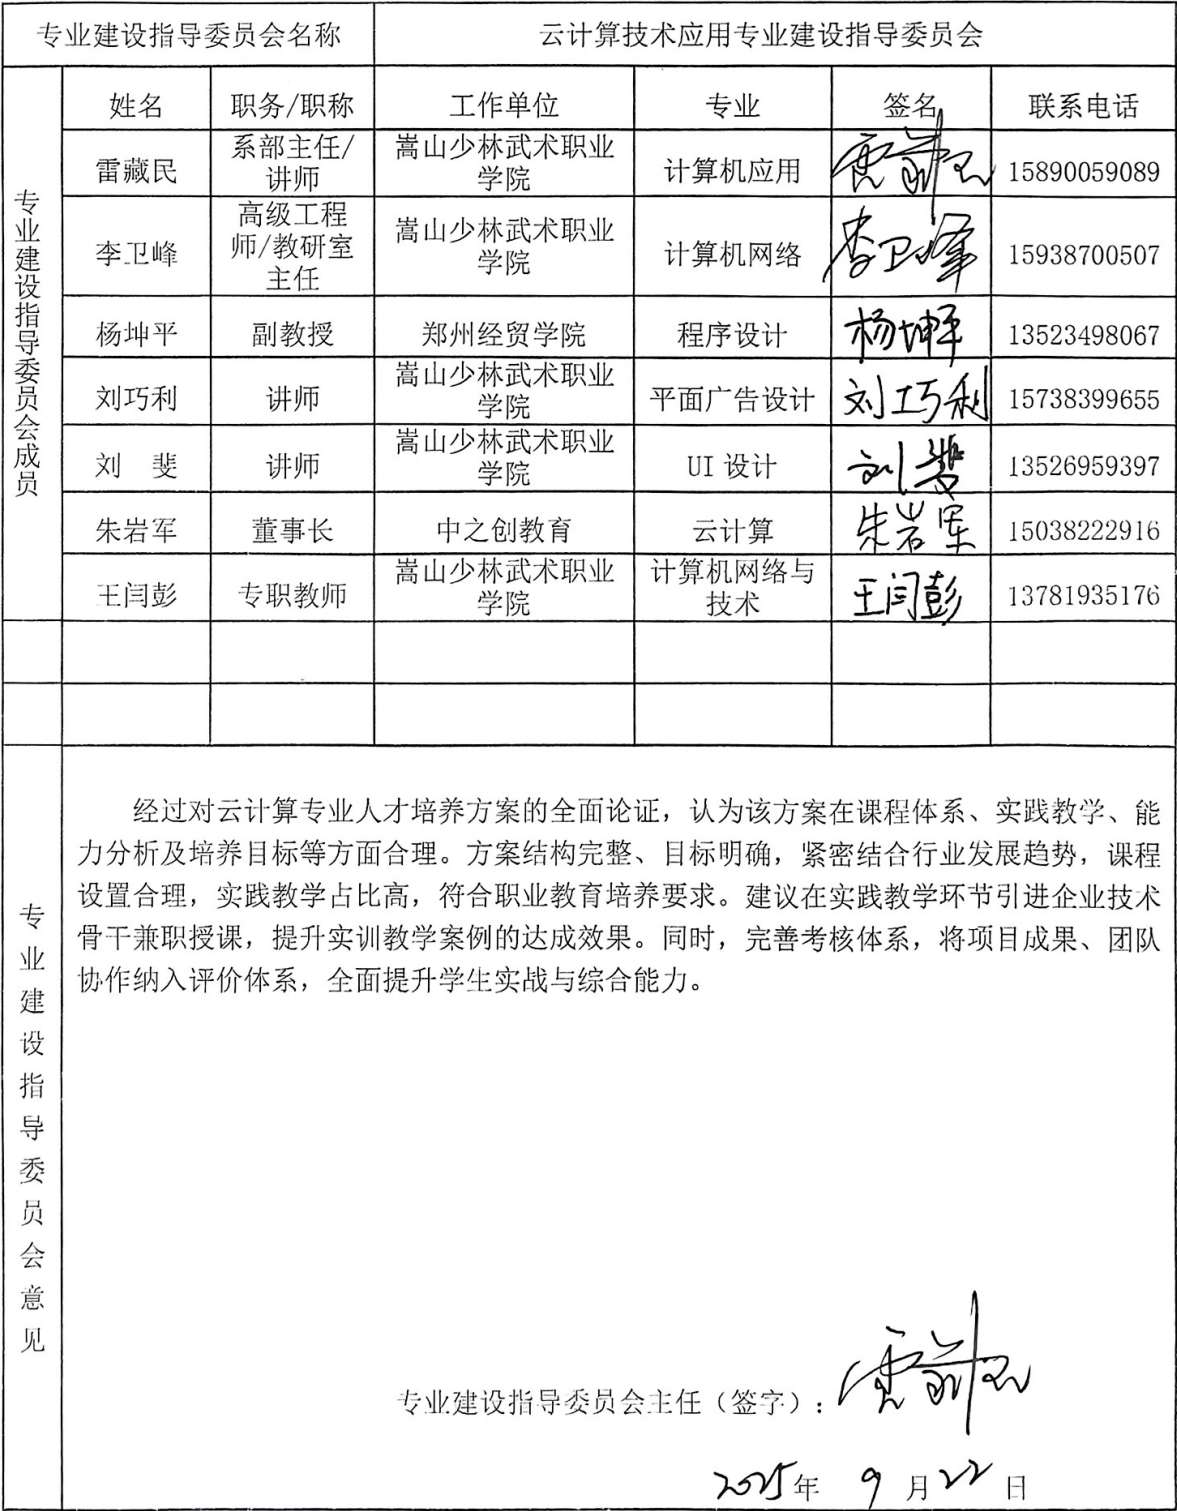 专业建设指导委员会名称 云计算技术应用专业建设指导委员会
专业建设指导委员会成员
姓名 职务/职称 工作单位 专业 签名 联系电话
雷藏民 系部主任/讲师 嵩山少林武术职业学院 计算机应用 雷藏民 15890059089
李卫峰 高级工程师/教研室主任 嵩山少林武术职业学院 计算机网络 李卫峰 15938700507
杨坤平 副教授 郑州经贸学院 程序设计 杨坤平 13523498067
刘巧利 讲师 嵩山少林武术职业学院 平面广告设计 刘巧利 15738399655
刘 斐 讲师 嵩山少林武术职业学院 UI 设计 刘斐 13526959397
朱岩军 董事长 中之创教育 云计算 朱岩军 15038222916
王闫彭 专职教师 嵩山少林武术职业学院 计算机网络与技术 王闫彭 13781935176
专业建设指导委员会意见
经过对云计算专业人才培养方案的全面论证，认为该方案在课程体系、实践教学、能
力分析及培养目标等方面合理。方案结构完整、目标明确，紧密结合行业发展趋势，课程
设置合理，实践教学占比高，符合职业教育培养要求。建议在实践教学环节引进企业技术
骨干兼职授课，提升实训教学案例的达成效果。同时，完善考核体系，将项目成果、团队
协作纳入评价体系，全面提升学生实战与综合能力。
专业建设指导委员会主任（签字）：雷藏民
2025年 9 月22 日